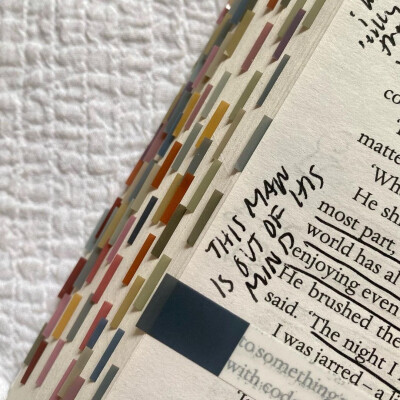 co
matte
'Wh
He shi
most part
world has al
enjoying even
He brushed the
said. 'The night I
I was jarred – a l
to something
with cod
THIS MAN
IS OUT OF HIS
MIND